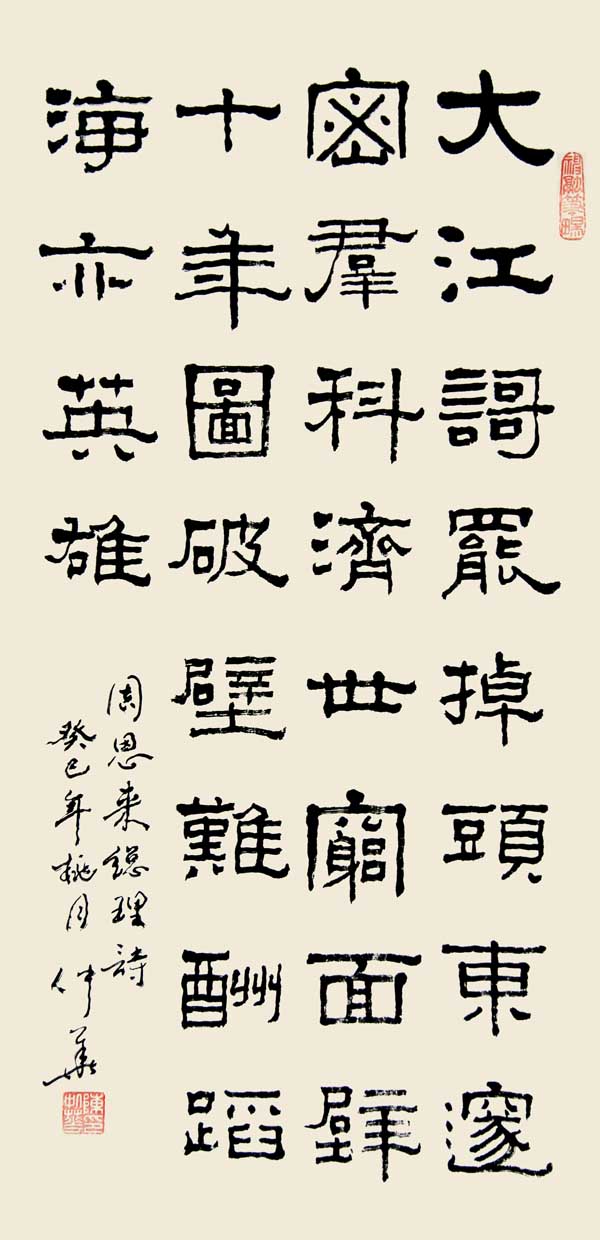 大江謌罷掉頭東邃
密羣科濟世窮面壁
十年圖破壁難酬蹈
海亦英雄
周恩来總理詩
癸巳年桃月仲華